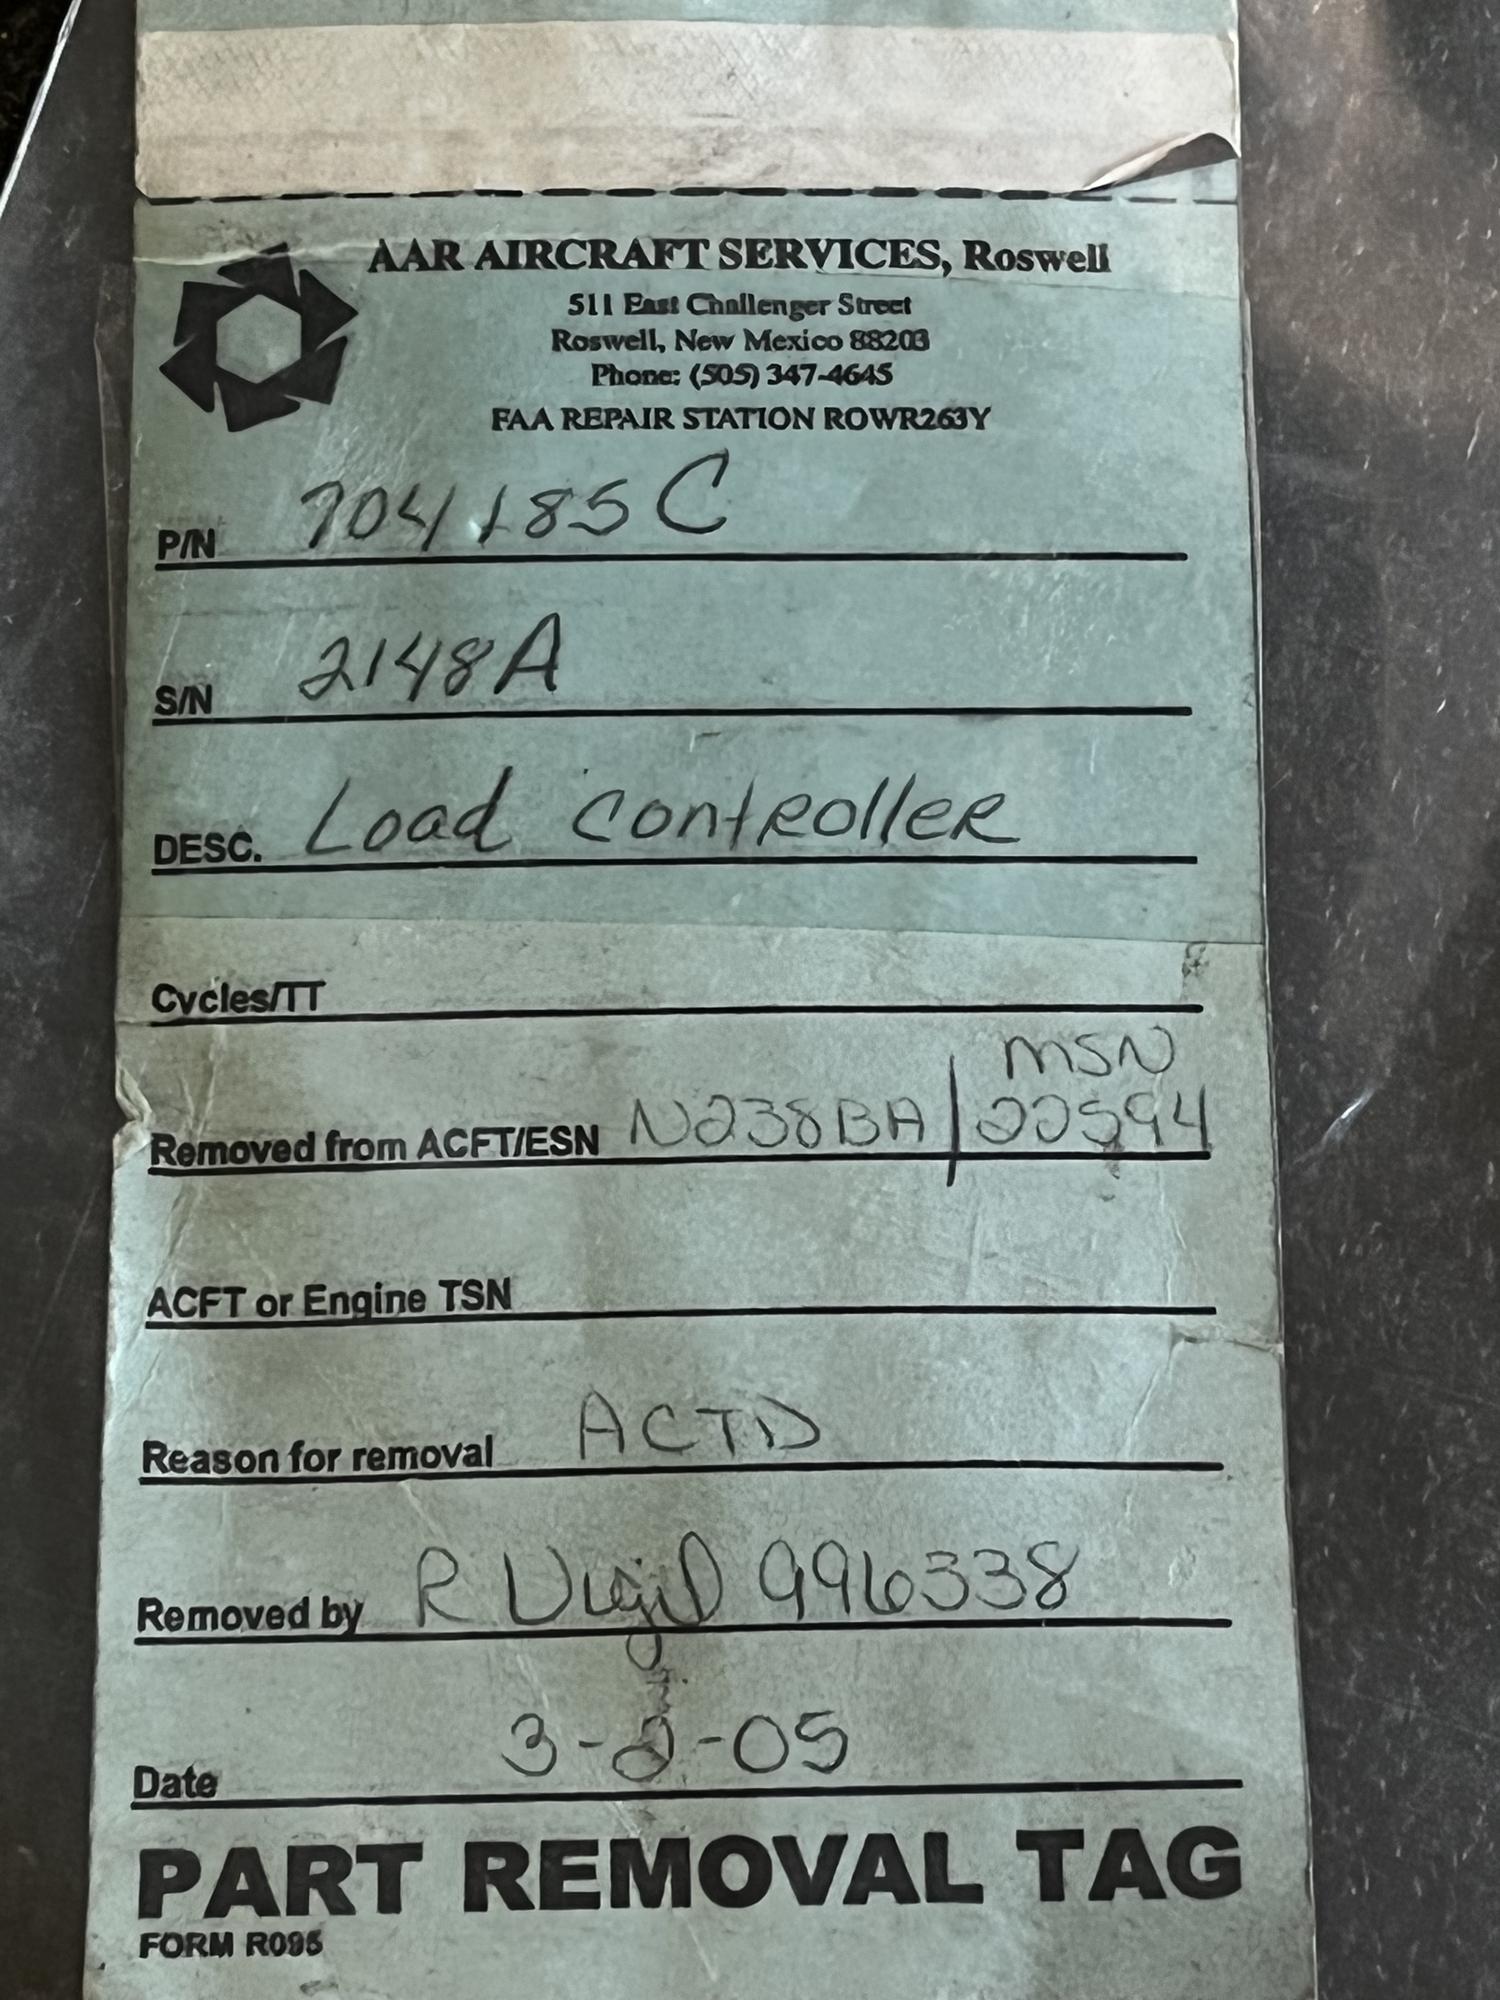 AAR AIRCRAFT SERVICES, Roswell
511 East Challenger Street
Roswell, New Mexico 88203
Phone: (505) 347-4645
FAA REPAIR STATION ROWR263Y
P/N 704185C
S/N 2148A
DESC. Load controller
Cycles/TT
MSN
Removed from ACFT/ESN N238BA | 22594
ACFT or Engine TSN
Reason for removal ACTD
Removed by R Vigil 996338
Date 3-2-05
PART REMOVAL TAG
FORM R095